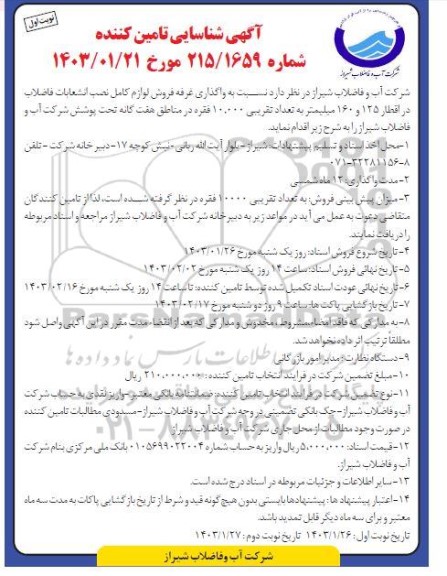 نوبت اول
آگهی شناسایی تامین کننده
شماره ۲۱۵/۱۶۵۹ مورخ ۱۴۰۳/۰۱/۲۱
شرکت آب و فاضلاب شیراز
شرکت آب و فاضلاب شیراز در نظر دارد نسبت به واگذاری غرفه فروش لوازم کامل نصب انشعابات فاضلاب
در اقطار ۱۲۵ و ۱۶۰ میلیمتر به تعداد تقریبی ۱۰,۰۰۰ فقره در مناطق هفت گانه تحت پوشش شرکت آب و
فاضلاب شیراز را به شرح زیر اقدام نماید.
۱-محل اخذ اسناد و تسلیم پیشنهادات: شیراز-بلوار آیت الله ربانی-نبش کوچه ۱۷-دبیرخانه شرکت-تلفن
۰۷۱-۳۲۲۸۱۱۵۶-۸
۲-مدت واگذاری: ۱۲ ماه شمسی
۳-میزان پیش بینی فروش: به تعداد تقریبی ۱۰۰۰۰ فقره در نظر گرفته شده است، لذا از تامین کنندگان
متقاضی دعوت به عمل می آید در مواعد زیر به دبیرخانه شرکت آب و فاضلاب شیراز مراجعه و اسناد مربوطه
را دریافت نمایند.
۴-تاریخ شروع فروش اسناد: روز یک شنبه مورخ ۱۴۰۳/۰۱/۲۶
۵-تاریخ نهائی فروش اسناد: ساعت ۱۴ روز یک شنبه مورخ ۱۴۰۳/۰۲/۰۲
۶-تاریخ نهائی عودت اسناد تکمیل شده توسط تامین کننده: تا ساعت ۱۴ روز یک شنبه مورخ ۱۴۰۳/۰۲/۱۶
۷-تاریخ بازگشایی پاکت ها: ساعت ۹ روز دو شنبه مورخ ۱۴۰۳/۰۲/۱۷
۸-به مدارکی که فاقد امضا، مشروط، مخدوش و مدارکی که بعد از انقضاء مدت مقرر در این آگهی واصل شود
مطلقا ترتیب اثر داده نخواهد شد.
۹-دستگاه نظارت: مدیر امور بازرگانی
۱۰-مبلغ تضمین شرکت در فرایند انتخاب تامین کننده: ۲۱۰,۰۰۰,۰۰۰ ریال
۱۱-نوع تضمین شرکت در فرایند انتخاب تامین کننده: ضمانتنامه بانکی معتبر-واریز نقدی به حساب شرکت
آب و فاضلاب شیراز-چک بانکی تضمینی در وجه شرکت آب و فاضلاب شیراز-مسدودی مطالبات تامین کننده
در صورت وجود مطالبات از محل جاری شرکت آب و فاضلاب شیراز
۱۲-قیمت اسناد: ۵,۰۰۰,۰۰۰ ریال واریز به حساب شماره ۰۱۰۵۶۹۹۰۲۲۰۰۴ بانک ملی مرکزی بنام شرکت
آب و فاضلاب شیراز.
۱۳-سایر اطلاعات و جزئیات مربوطه در اسناد درج شده است.
۱۴-اعتبار پیشنهاد ها: پیشنهادها بایستی بدون هیچ گونه قید و شرط از تاریخ بازگشایی پاکات به مدت سه ماه
معتبر و برای سه ماه دیگر قابل تمدید باشد.
تاریخ نوبت اول: ۱۴۰۳/۱/۲۶ تاریخ نوبت دوم: ۱۴۰۳/۱/۲۷
شرکت آب وفاضلاب شیراز